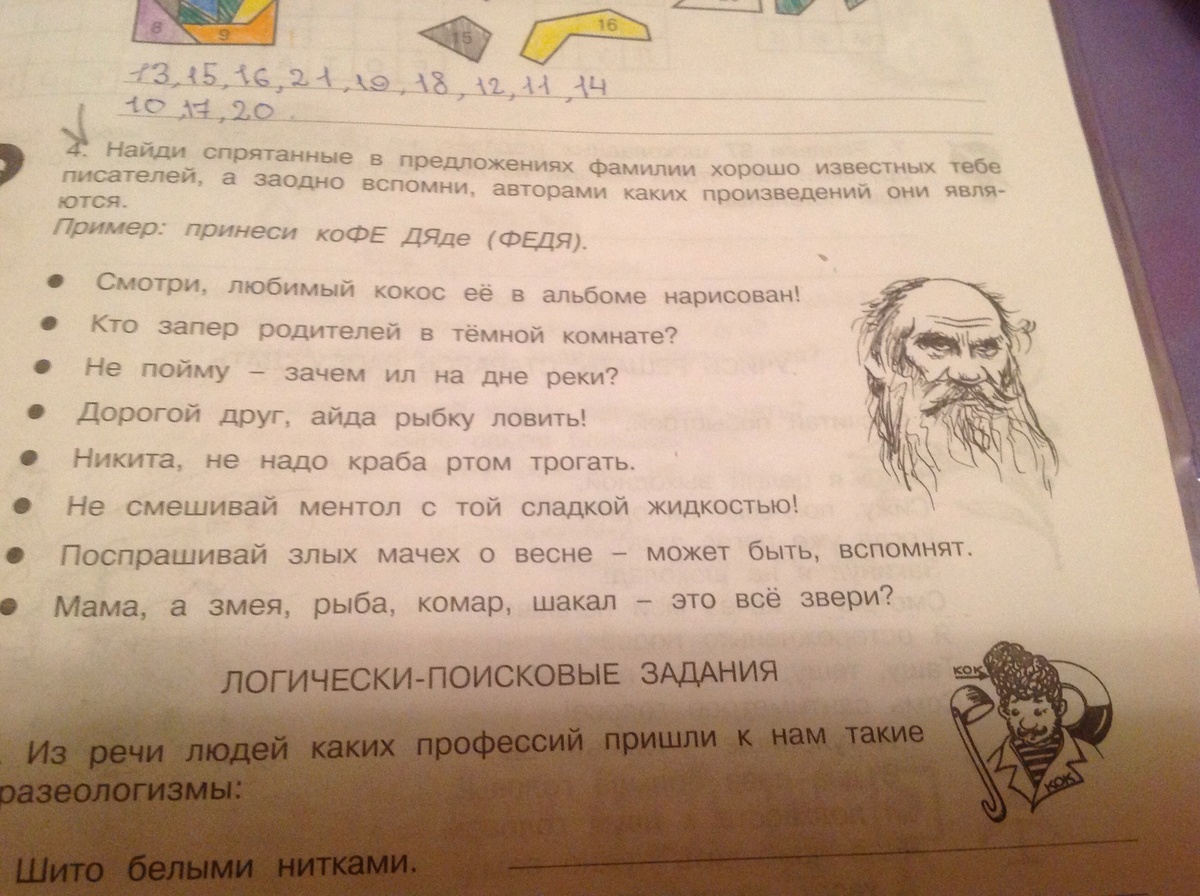 8
9
15
16
13, 15, 16, 21, 19, 18, 12, 11, 14
10, 17, 20.
4. Найди спрятанные в предложениях фамилии хорошо известных тебе
писателей, а заодно вспомни, авторами каких произведений они явля-
ются.
Пример: принеси коФЕ ДЯде (ФЕДЯ).
• Смотри, любимый кокос её в альбоме нарисован!
• Кто запер родителей в тёмной комнате?
• Не пойму – зачем ил на дне реки?
• Дорогой друг, айда рыбку ловить!
• Никита, не надо краба ртом трогать.
• Не смешивай ментол с той сладкой жидкостью!
• Поспрашивай злых мачех о весне – может быть, вспомнят.
• Мама, а змея, рыба, комар, шакал – это всё звери?
ЛОГИЧЕСКИ-ПОИСКОВЫЕ ЗАДАНИЯ
КОК
Из речи людей каких профессий пришли к нам такие
разеологизмы:
КОК
Шито белыми нитками.